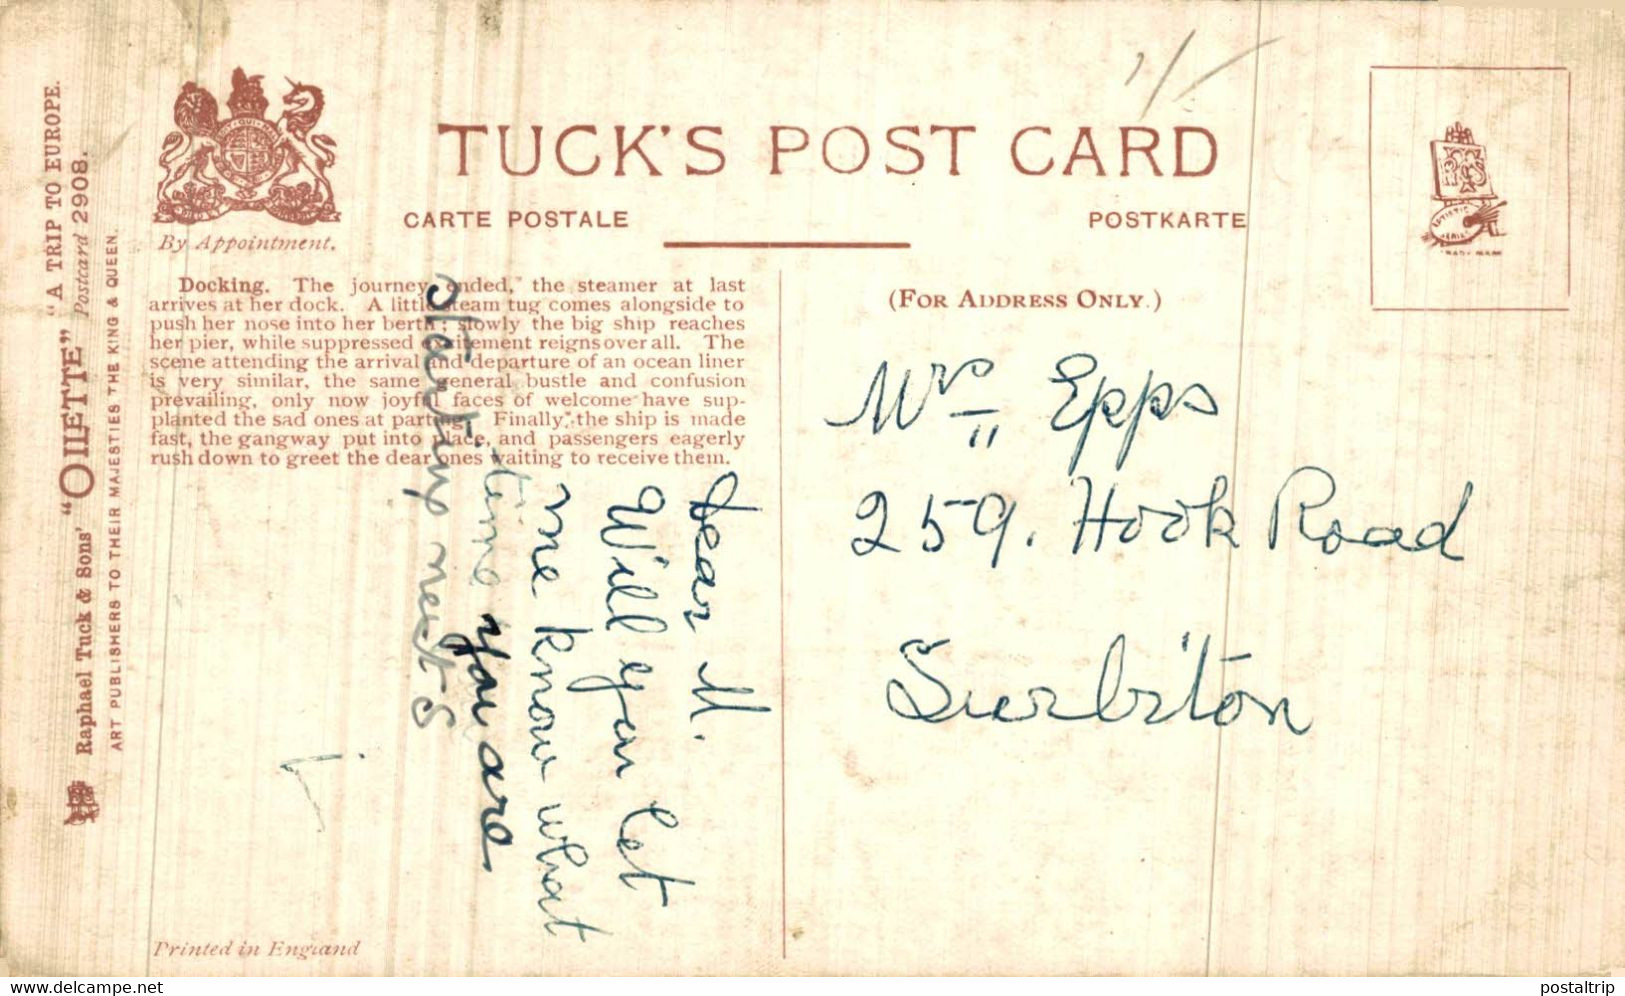 "A TRIP TO EUROPE.
Raphael Tuck & Sons' "OILETTE" Postcard 2908.
ART PUBLISHERS TO THEIR MAJESTIES THE KING & QUEEN.
By Appointment.
TUCK'S POST CARD
CARTE POSTALE
POSTKARTE
Docking. The journey ended, the steamer at last
arrives at her dock. A little steam tug comes alongside to
push her nose into her berth; slowly the big ship reaches
her pier, while suppressed excitement reigns over all. The
scene attending the arrival and departure of an ocean liner
is very similar, the same general bustle and confusion
prevailing, only now joyful faces of welcome have sup-
planted the sad ones at parting. Finally, the ship is made
fast, the gangway put into place, and passengers eagerly
rush down to greet the dear ones waiting to receive them.
Dear M.
Will you let
me know what
time you are
starting next S
(FOR ADDRESS ONLY.)
Mrs Epps
259. Hook Road
Surbiton
1/-
Printed in England
www.delcampe.net
postaltrip